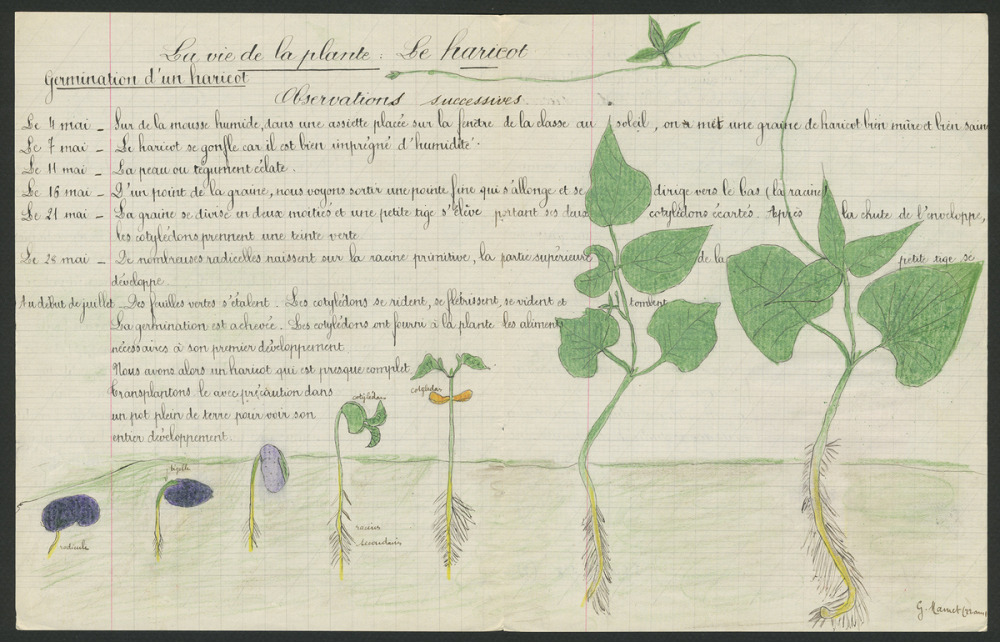 La vie de la plante : Le haricot
Germination d'un haricot
Observations successives
Le 4 mai – Sur de la mousse humide, dans une assiette placée sur la fenêtre de la classe au soleil, on met une graine de haricot bien mûre et bien saine
Le 7 mai – Le haricot se gonfle car il est bien imprégné d'humidité.
Le 11 mai – La peau ou tégument éclate.
Le 16 mai – D'un point de la graine, nous voyons sortir une pointe fine qui s'allonge et se dirige vers le bas (la racine)
Le 21 mai – La graine se divise en deux moitiés et une petite tige s'élève portant ses deux cotylédons écartés. Après la chute de l'enveloppe,
les cotylédons prennent une teinte verte
Le 28 mai – De nombreuses radicelles naissent sur la racine primitive, la partie supérieure de la petite tige se
développe.
Au début de juillet – Des feuilles vertes s'étalent. Les cotylédons se rident, se flétrissent, se vident et tombent
La germination est achevée. Les cotylédons ont fourni à la plante les aliments
nécessaires à son premier développement
Nous avons alors un haricot qui est presque complet
Transplantons le avec précaution dans
un pot plein de terre pour voir son
entier développement.
cotylédon
cotylédon
tigelle
radicule
racines
secondaires
G. Mamet